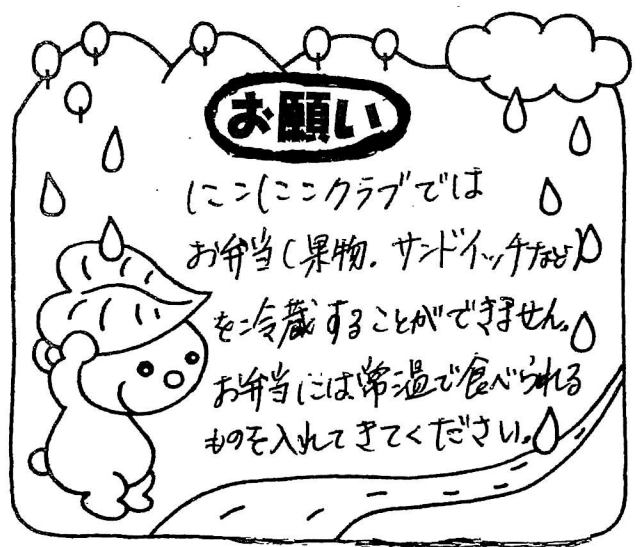 お願い
にこにこクラブでは
お弁当(果物.サンドイッチなど)
を冷蔵することができません。
お弁当には常温で食べられる
ものを入れてきてください。